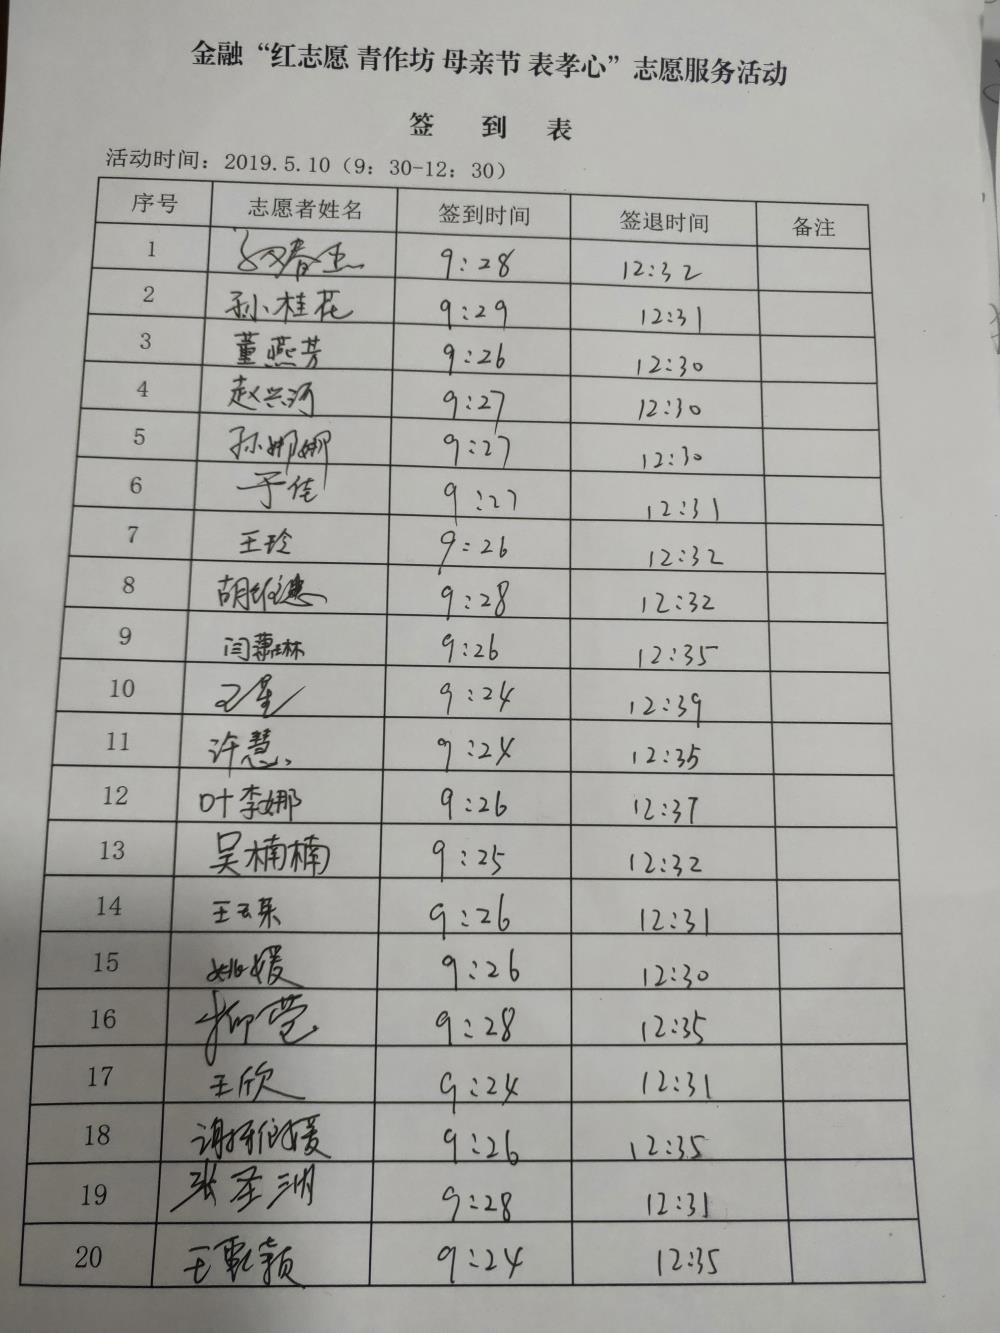 金融“红志愿 青作坊 母亲节 表孝心”志愿服务活动
签 到 表
活动时间：2019.5.10（9：30-12：30）
序号 志愿者姓名 签到时间 签退时间 备注
1 9:28 12:32
2 孙桂花 9:29 12:31
3 董燕芳 9:26 12:30
4 赵兴河 9:27 12:30
5 孙娜娜 9:27 12:30
6 于佳 9:27 12:31
7 王玲 9:26 12:32
8 胡维德 9:28 12:32
9 闫蕙琳 9:26 12:35
10 王星 9:24 12:39
11 许慧 9:24 12:35
12 叶李娜 9:26 12:37
13 吴楠楠 9:25 12:32
14 9:26 12:31
15 姚媛 9:26 12:30
16 柳莺 9:28 12:35
17 王欣 9:24 12:31
18 9:26 12:35
19 张圣洲 9:28 12:31
20 9:24 12:35